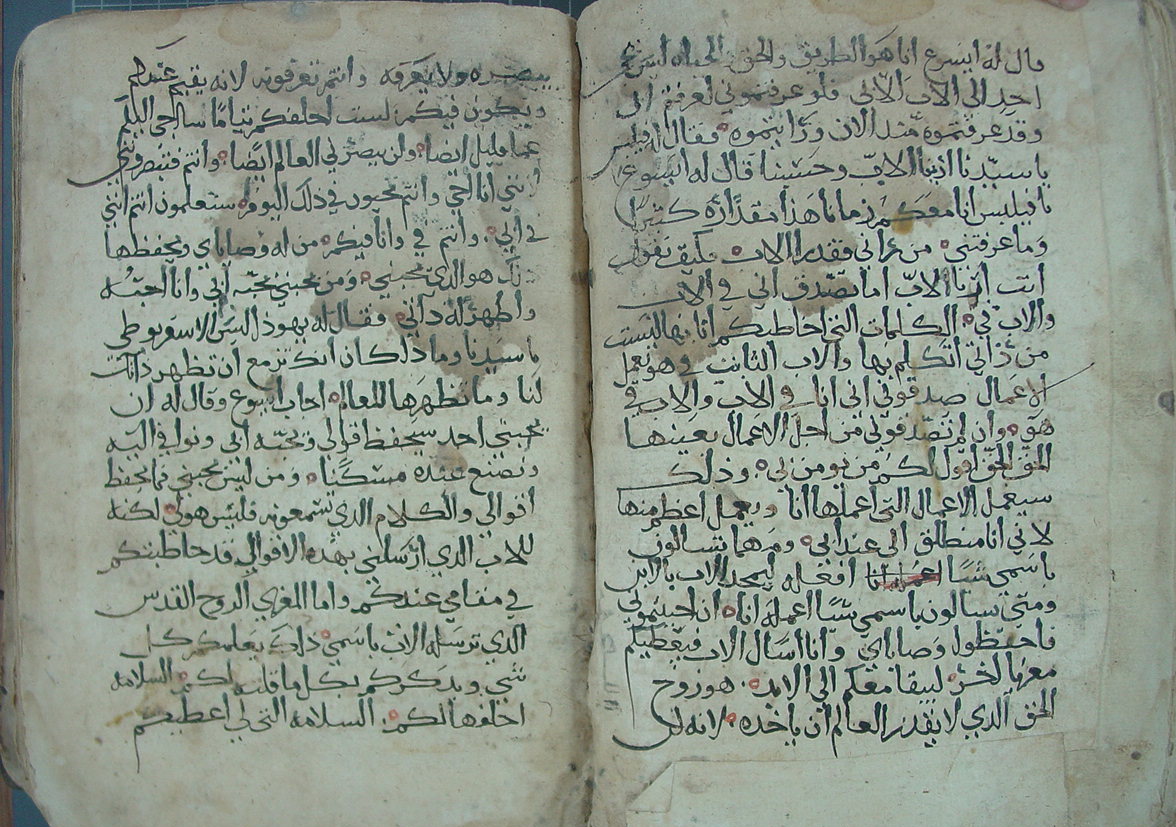 قال له ايسوع انا هو الطريق والحق والحياه ليس يجي
احد الى الاب الا بي فلو عرفتموني لعرفتم ابي
وقد عرفتموه منذ الان ورايتموه فقال له فيلبس
يا سيدنا ارينا الاب وحسبنا قال له ايسوع
يا فيلبس انا معكم زمانا هذا مقداره كثيرا
وما عرفتني من راني فقد را الاب فكيف تقول
انت ارنا الاب اما تصدق اني في الاب
والاب في الكلمات التي اخاطبكم انا بها ليست
من ذاتي اتكلم بها والاب الثابت في هو يعمل
الاعمال صدقوني اني انا في الاب والاب في
هو وان لم تصدقوني من اجل الاعمال بعينها
الحق الحق اقول لكم من يومن بي وذلك
سيعمل الاعمال التي اعملها انا ويعمل اعظم منها
لاني انا منطلق الى عند ابي ومهما تسالون
باسمي شيا انا افعله ليمجد الاب بالابن
ومتى سالتون باسمي شيا اعمله انا ان احببتموني
فاحفظوا وصاياي وانا اسال الاب فيعطيكم
معزيا اخر ليبقا معكم الى الابد هو روح
الحق الذي لا يقدر العالم ان ياخذه لانه لن
يبصره ولا يعرفه وانتم تعرفونه لانه يقيم عندكم
ويكون فيكم لست اخلفكم يتاما ساجي اليكم
عما قليل ايضا ولن يبصرني العالم ايضا وانتم فتبصرونني
لانني انا احي وانتم تحيون في ذلك اليوم ستعلمون انتم انني
في ابي وانتم في وانا فيكم من له وصاياي ويحفظها
ذلك هو الذي يحبني ومن يحبني يحبه ابي وانا احبه
واظهر له ذاتي فقال له يهوذا ليس الاسخريوطي
يا سيدنا وما ذا كان انك تزمع ان تظهر ذاتك
لنا وما تظهرها للعالم اجاب ايسوع وقال له ان
يحبني احد سيحفظ قولي ويحبه ابي ونوافي اليه
ونصنع عنده مسكنا ومن ليس يحبني فما يحفظ
اقوالي والكلام الذي تسمعونه فليس هو لي لكنه
للاب الذي ارسلني بهذه الاقوال قد خاطبتكم
في مقامي عندكم واما المعزي الروح القدس
الذي ترسله الاب باسمي ذلك يعلمكم كل
شي ويذكركم بكل ما قلته لكم السلامه
اخلفها لكم السلامه التي لي اعطيكم